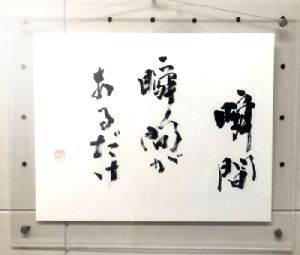 瞬間
瞬間が
あるだけ